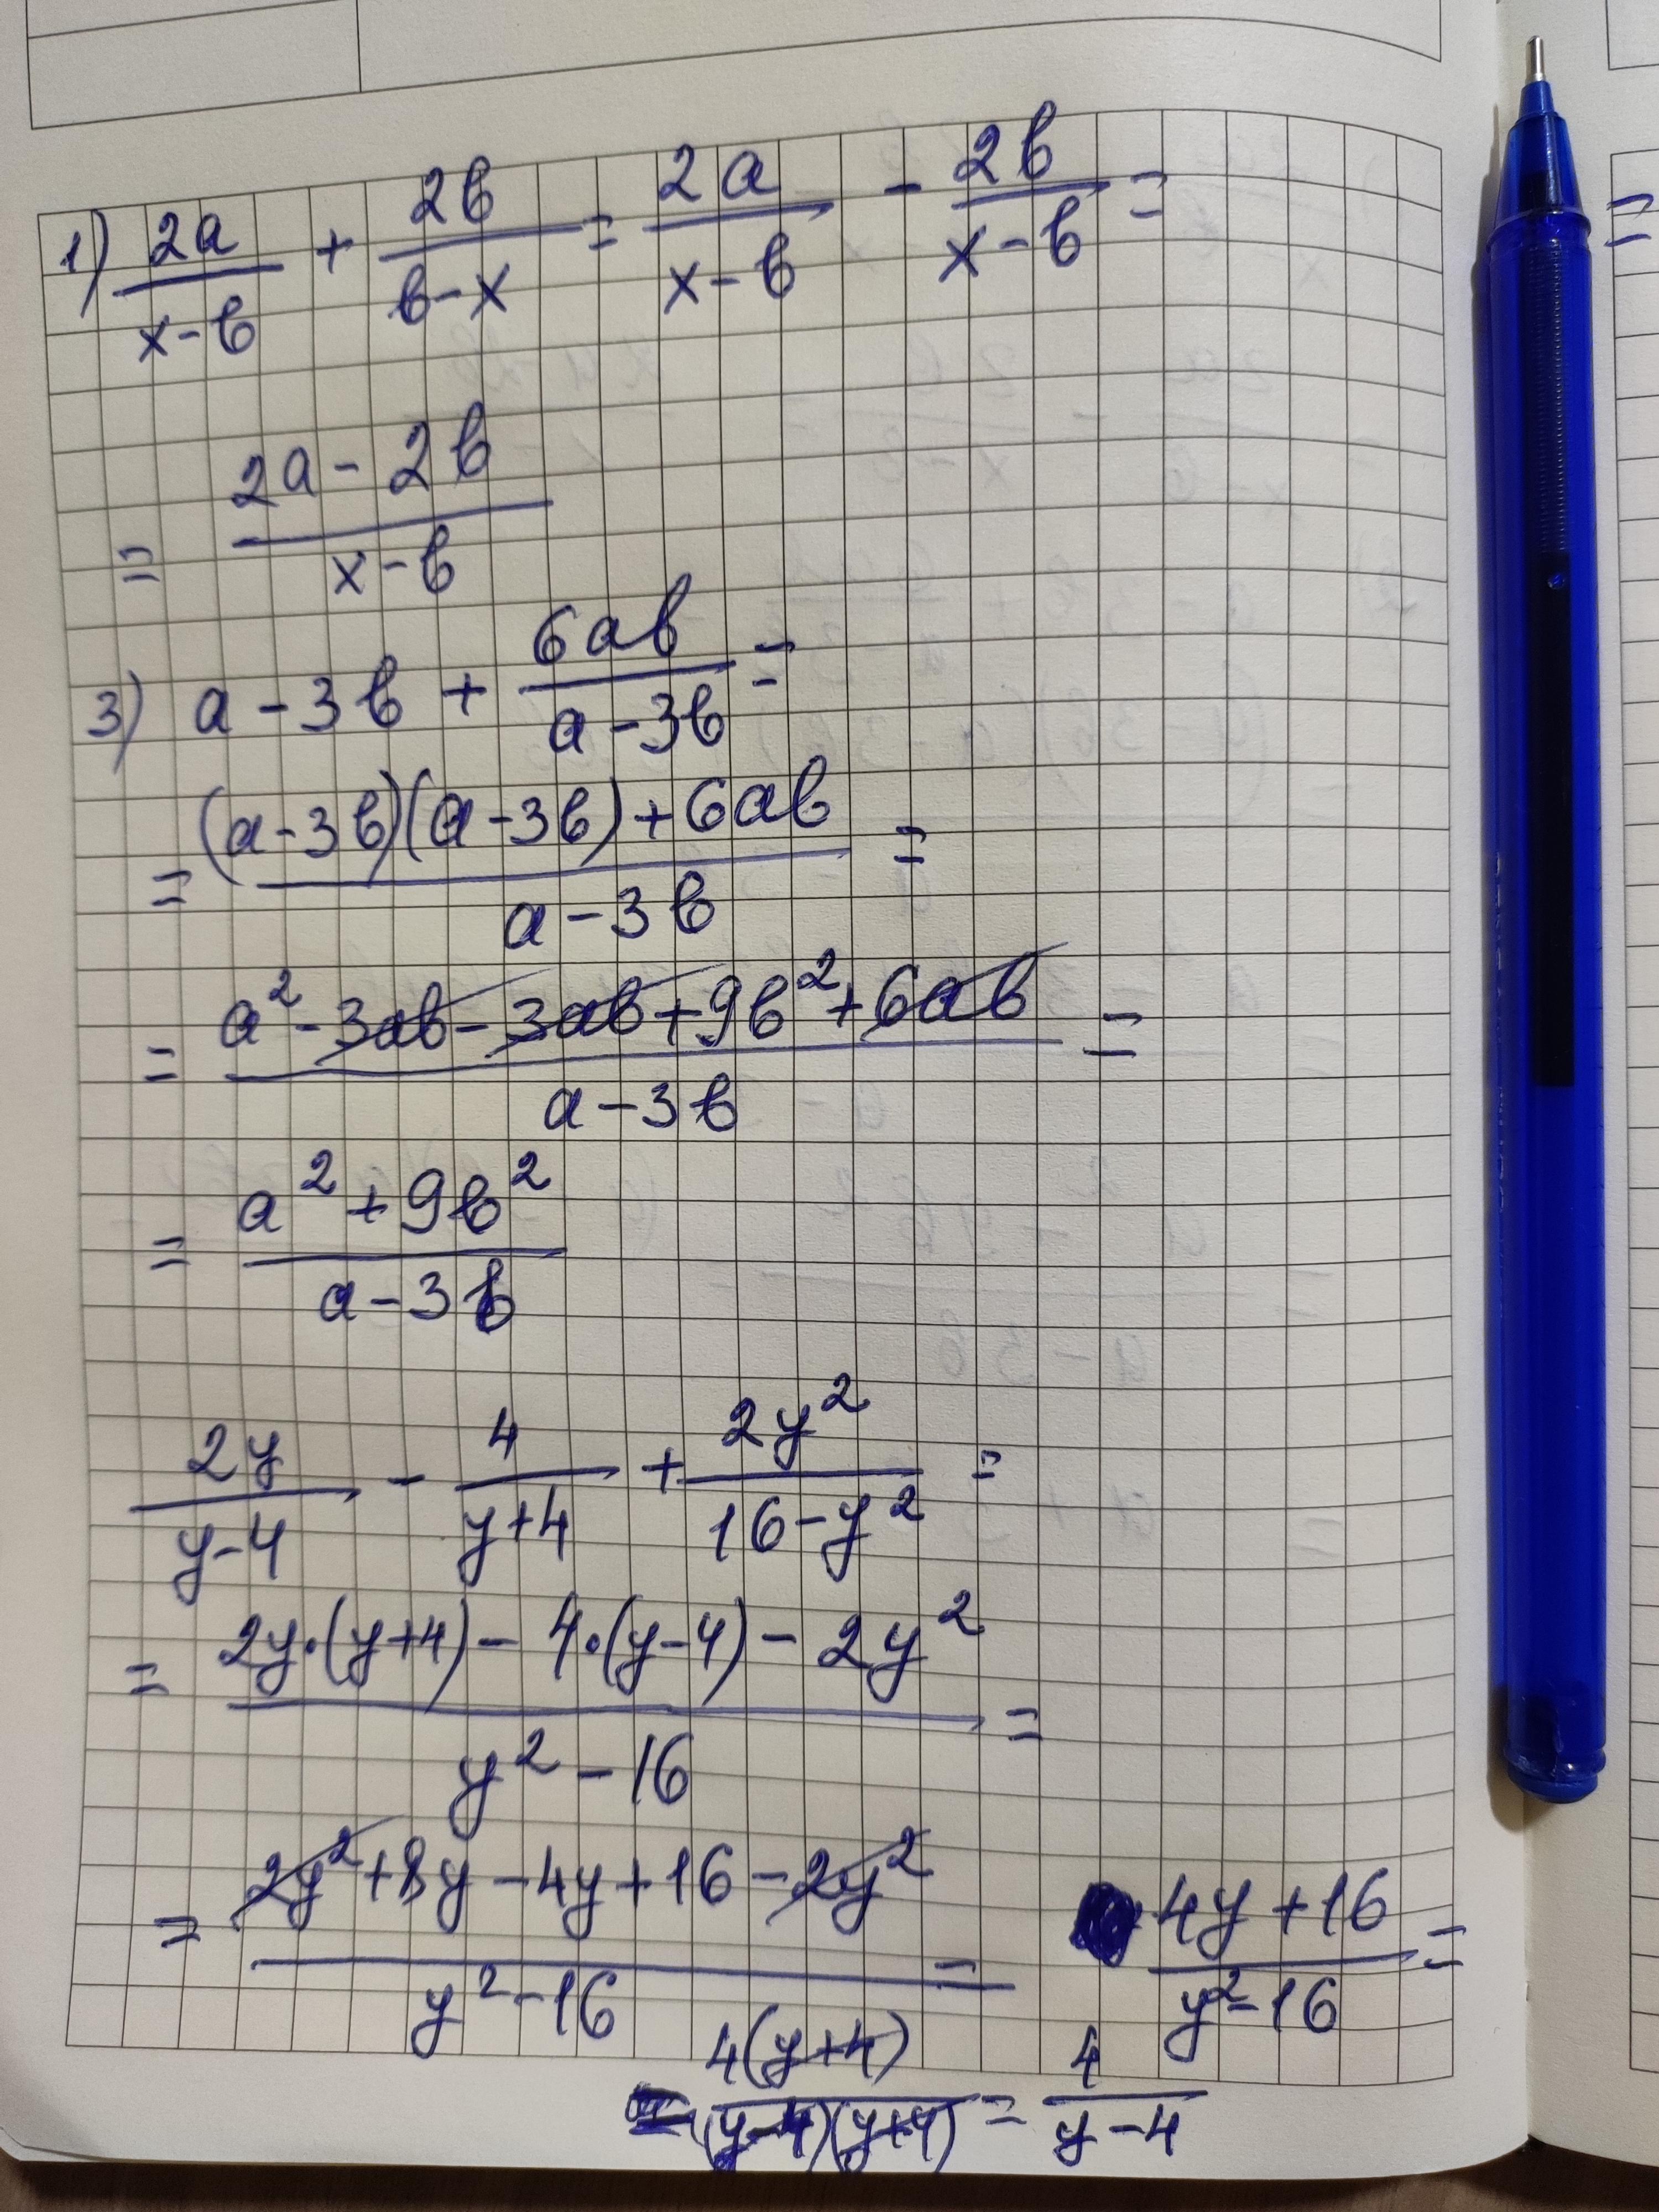 1) 2a/(x-b) + 2b/(b-x) = 2a/(x-b) - 2b/(x-b) =
= (2a-2b)/(x-b)
3) a-3b + 6ab/(a-3b) =
= ((a-3b)(a-3b)+6ab)/(a-3b) =
= (a²-3ab-3ab+9b²+6ab)/(a-3b) =
= (a²+9b²)/(a-3b)
2y/(y-4) - 4/(y+4) + 2y²/(16-y²) =
= (2y·(y+4)-4·(y-4)-2y²)/(y²-16) =
= (2y²+8y-4y+16-2y²)/(y²-16) = (4y+16)/(y²-16) =
= 4(y+4)/((y-4)(y+4)) = 4/(y-4)